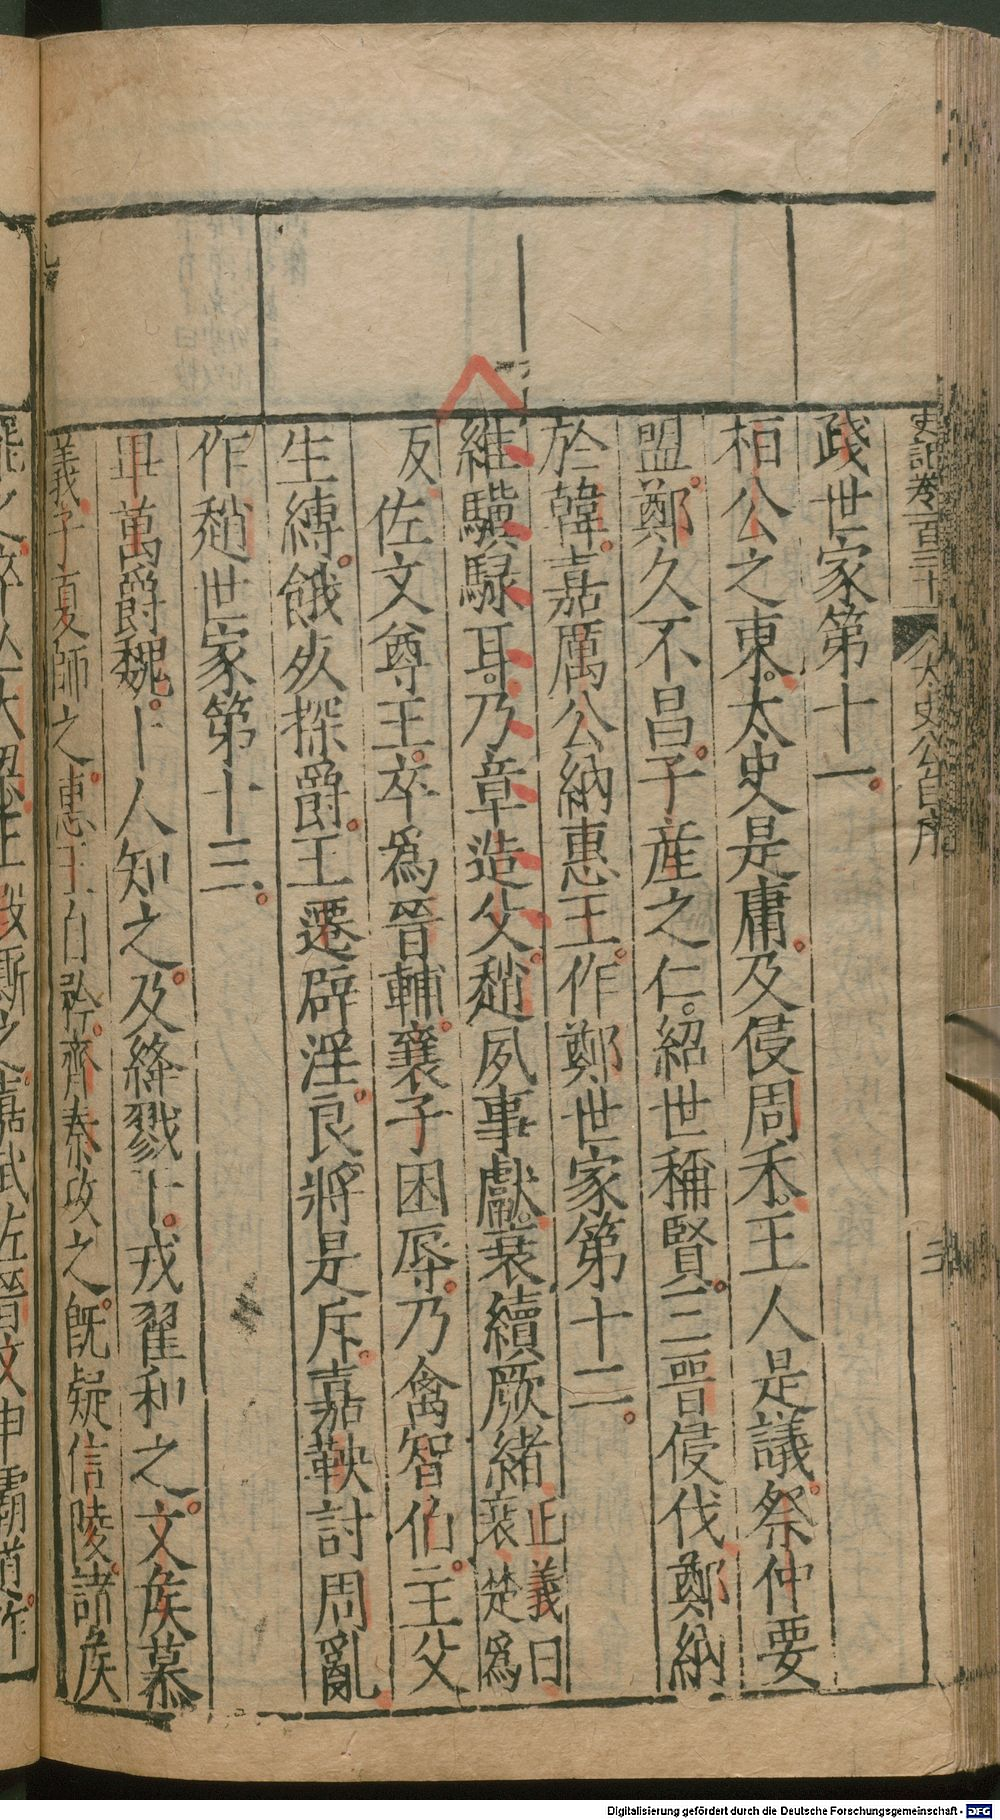 史記卷百三十 太史公自序
踐世家第十一。
桓公之東。太史是庸。及侵周禾。王人是議。祭仲要
盟。鄭久不昌。子産之仁。紹世稱賢。三晉侵伐。鄭納
於韓。嘉厲公納惠王。作鄭世家第十二。
維驥騄耳。乃章造父。趙夙事獻。衰續厥緒。正義曰衰楚爲
反。佐文尊王。卒爲晉輔。襄子困辱。乃禽智伯。主父
生縛。餓死探爵。王遷辟淫。良將是斥。嘉鞅討周亂。
作趙世家第十三。
畢萬爵魏。卜人知之。及絳戮干。戎翟和之。文侯慕
義。子夏師之。惠王自矜。齊秦攻之。既疑信陵。諸侯
Digitalisierung gefördert durch die Deutsche Forschungsgemeinschaft - DFG